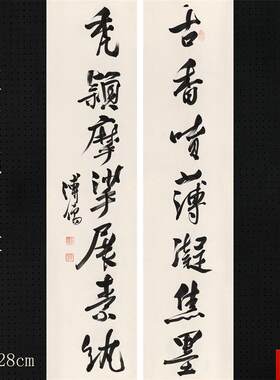 古香噴薄凝焦墨
禿穎摩挲展素紈
溥儒
28cm